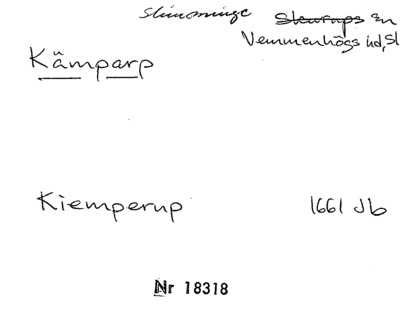 Slimminge Sleurups sn
Vemmenhögs hd, Sk
Kämparp
Kiemperup 1661 Jb
Nr 18318